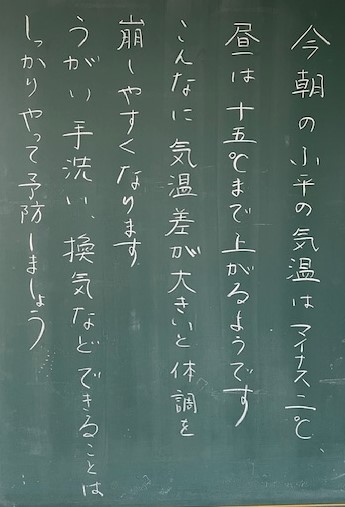 今朝の小平の気温はマイナス二℃、
昼は十五℃まで上がるようです
こんなに気温差が大きいと体調を
崩しやすくなります
うがい手洗い、換気などできることは
しっかりやって予防しましょう